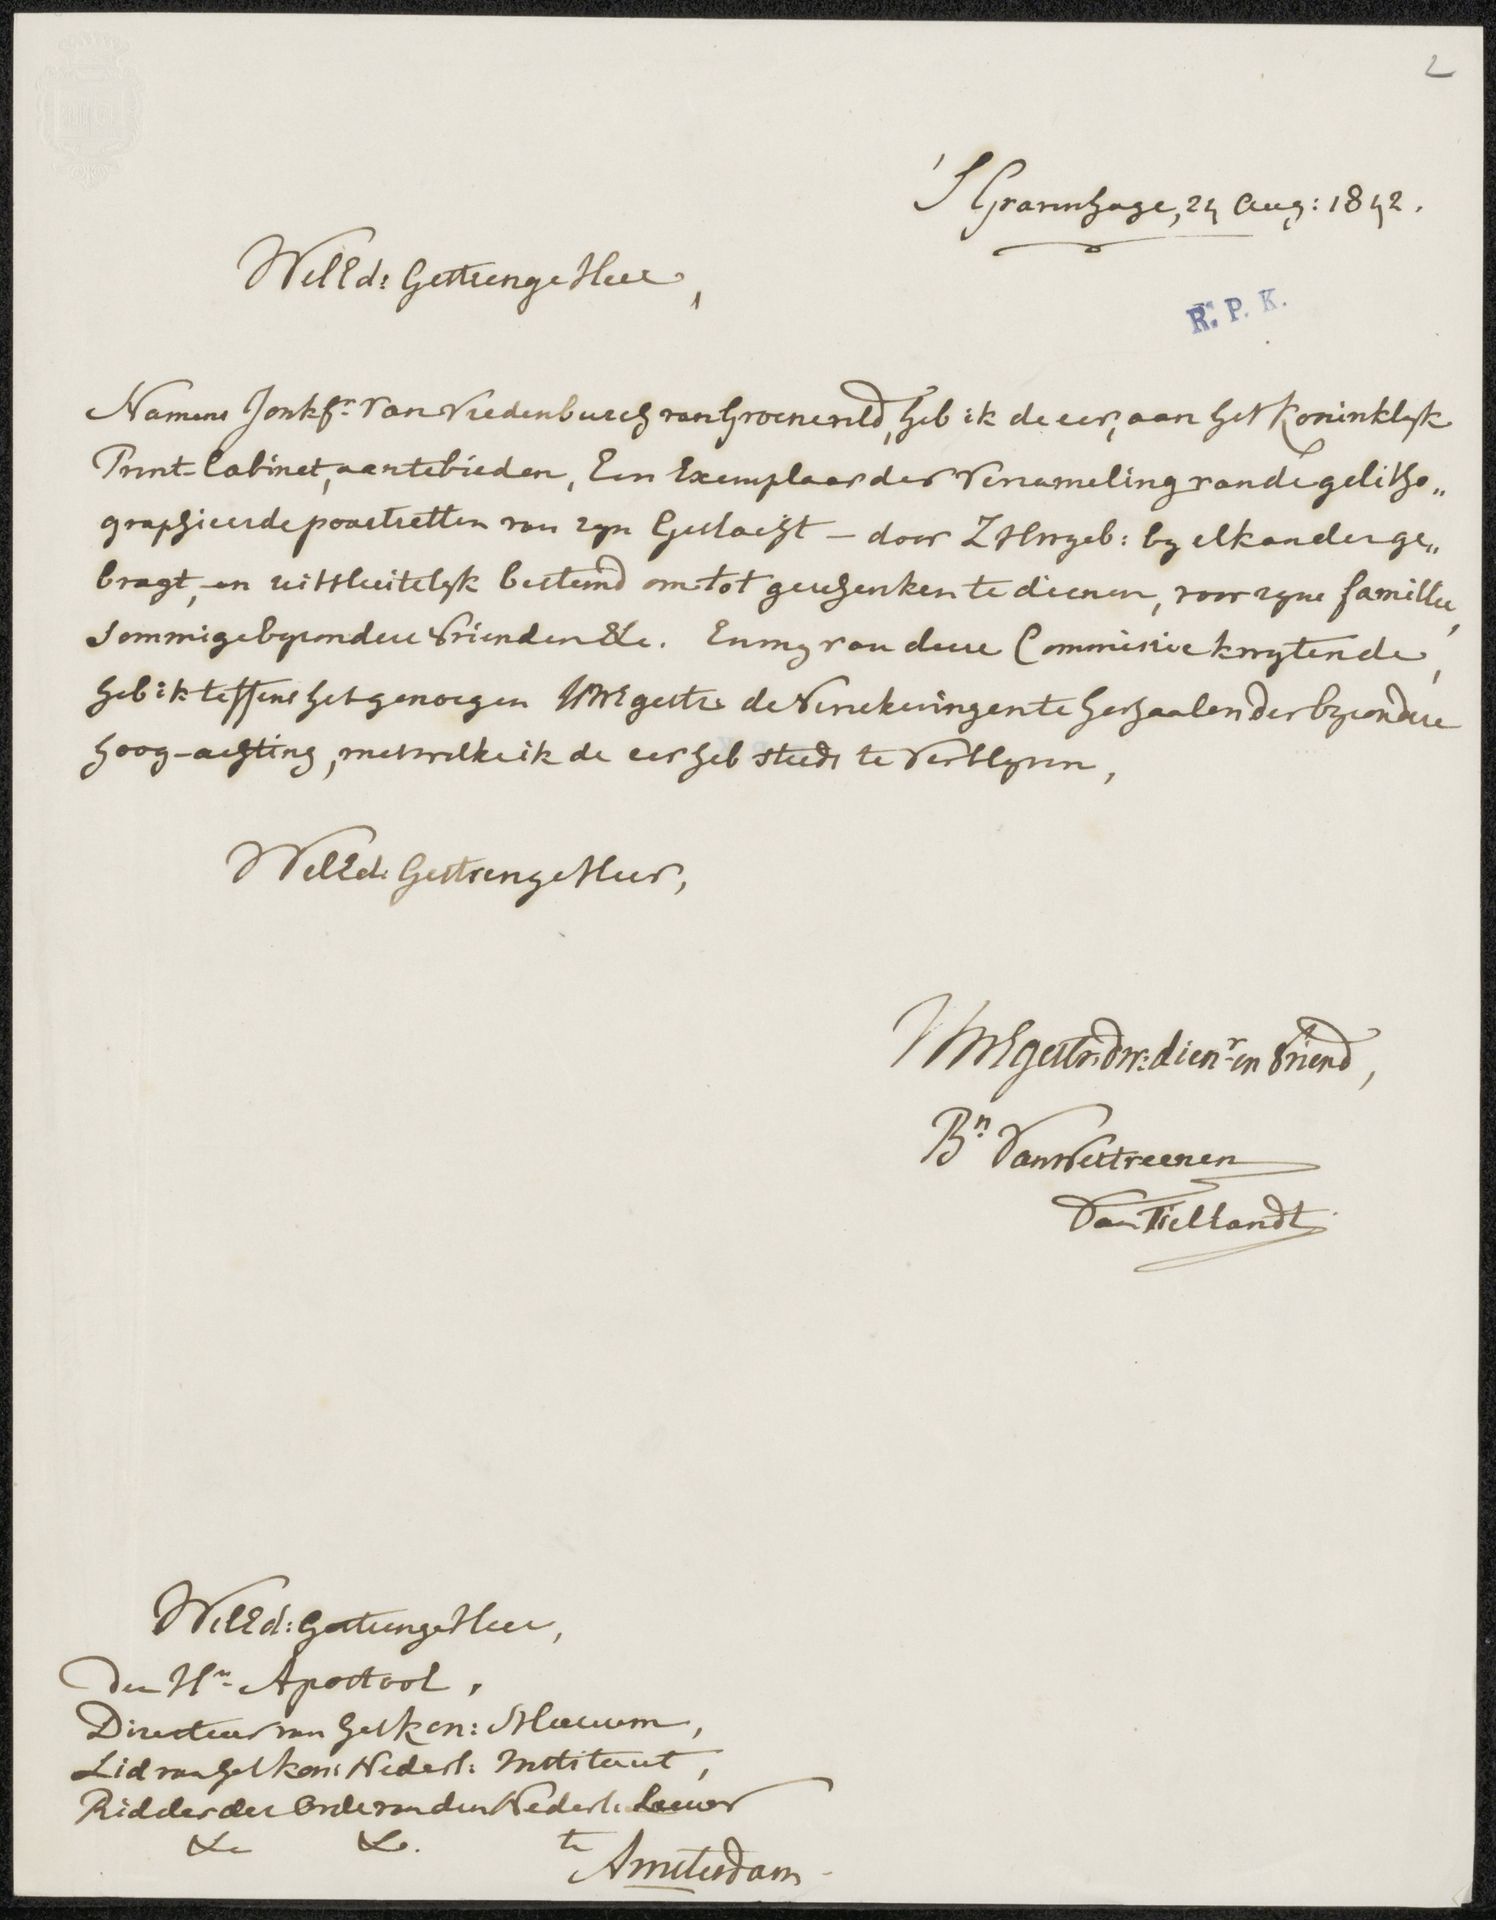 2
'S Gravenhage, 24 Aug: 1842.
WelEd: Gestrenge Heer,
R. P. K.
Namens Jonkhr. Van Vredenburch van Groeneveld, heb ik de eer, aan het Koninklyk
Prent-Cabinet, aantebieden, Een Exemplaar der Verzameling van de gelitho„
graphieerde portretten van zyn Geslacht – door ZHWgeb: by elkander ge„
bragt, en uitsluitelyk bestemd om tot geschenken te dienen, voor zyne famillie,
Sommige byzondere Vrienden &c. En my van deze Commissie kwytende,
heb ik teffens het genoegen UWEgestr. de Verzekeringen te herhaalen der byzondere
hoog-achting, met welke ik de eer heb steeds te Verblyven,
WelEd: Gestrenge Heer,
UWEgestr. dw: dienr. en Vriend,
Bn. Van Westreenen
Van Tiellandt
WelEd: Gestrenge Heer,
Den Hr. Apostool,
Directeur van het Kon: Museum,
Lid van het Kon: Nederl: Instituut,
Ridder der Orde van den Nederl: Leeuw
&c &c. te
Amsterdam